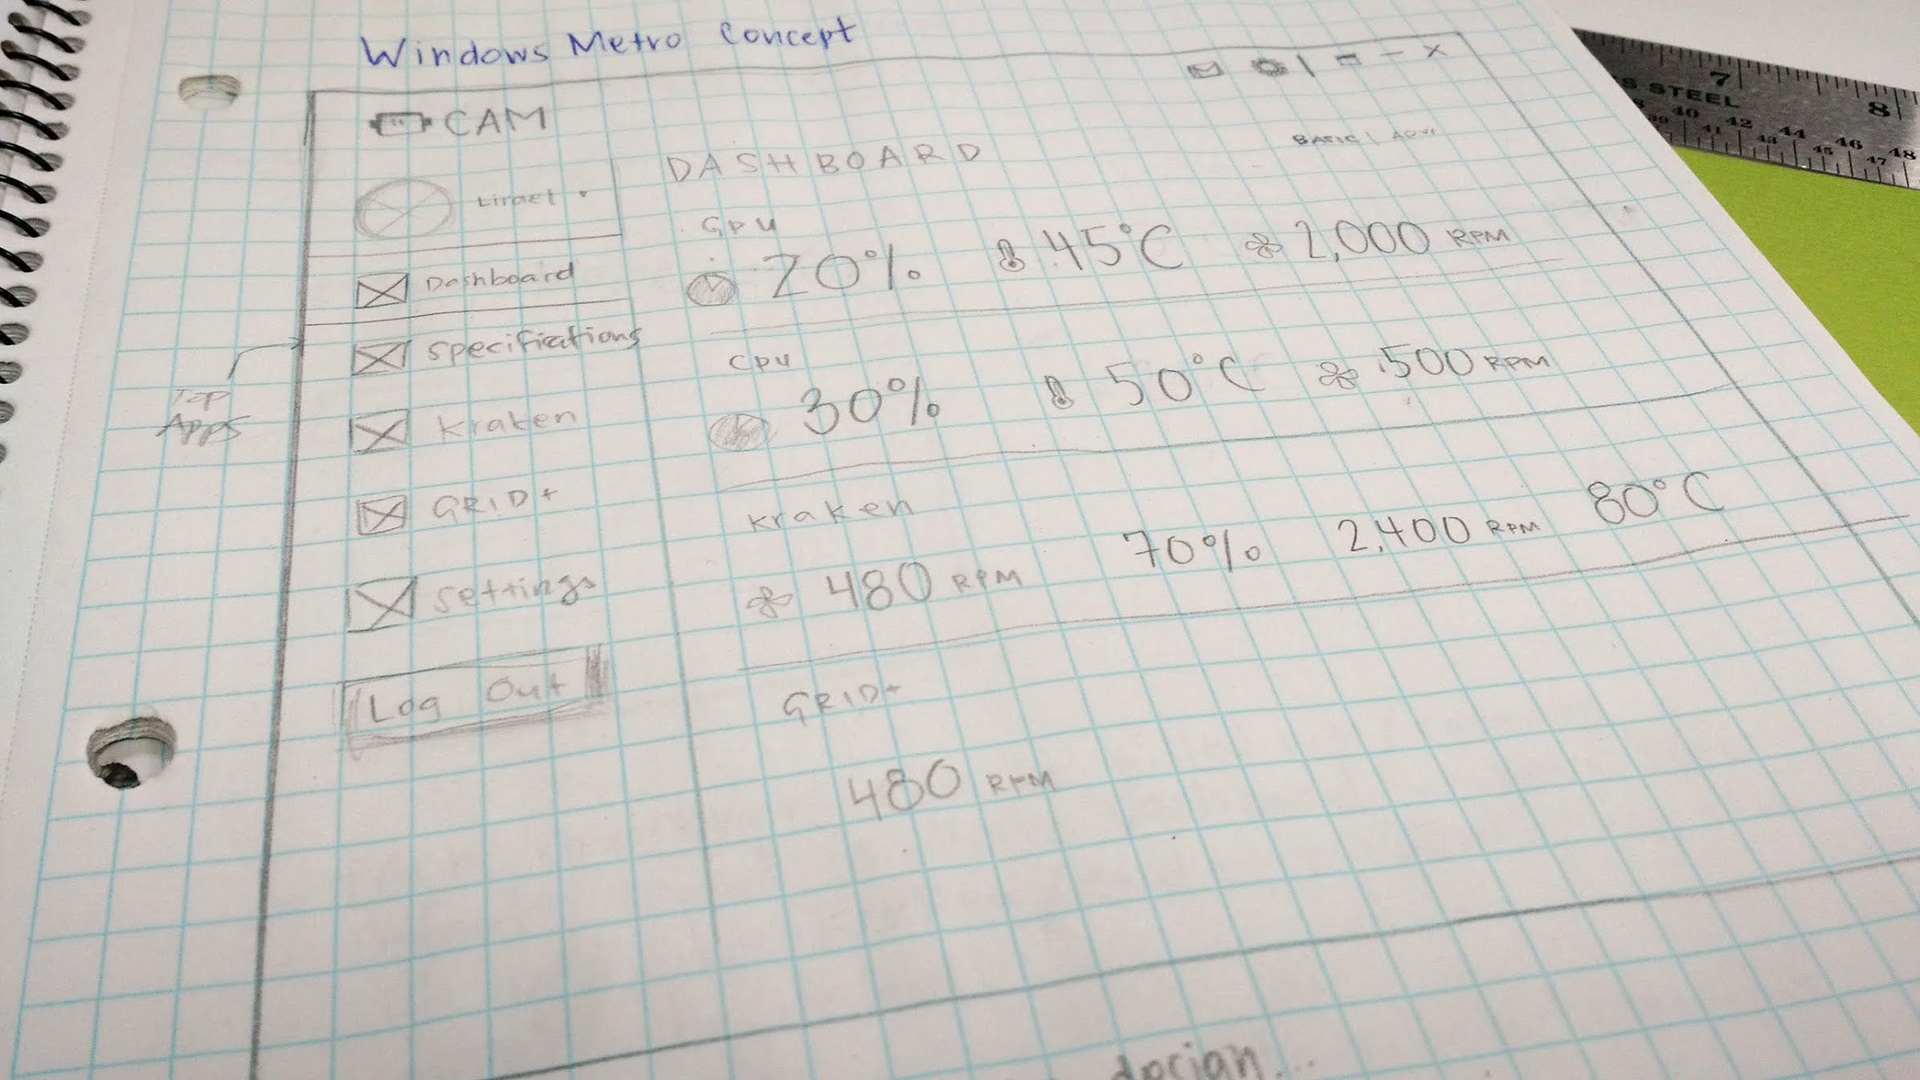 Windows Metro Concept
CAM
DASHBOARD
Dashboard
Specifications
Kraken
GRID+
Settings
Log Out
Top
Apps
GPU
20% 45°C 2,000 RPM
CPU
30% 50°C 500 RPM
Kraken
480 RPM 70% 2,400 RPM 80°C
GRID+
480 RPM
BASIC |
design...
STEEL
7 8
40 42 44 46 48
41 43 45 47